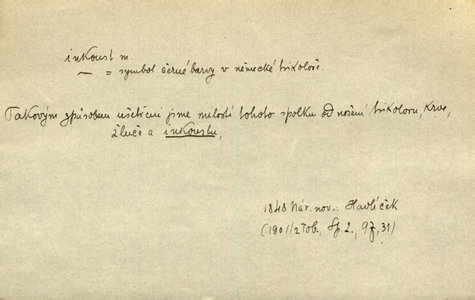 inkoust m.
— = symbol černé barvy v německé trikoloře.
Takovým způsobem ušetřeni jsme milostí tohoto spolku od nošení trikoloru, krve,
žluče a inkoustu,
1848 Nár. nov. Havlíček
(1901/2 Tob. Sp. 2., 97, 31)